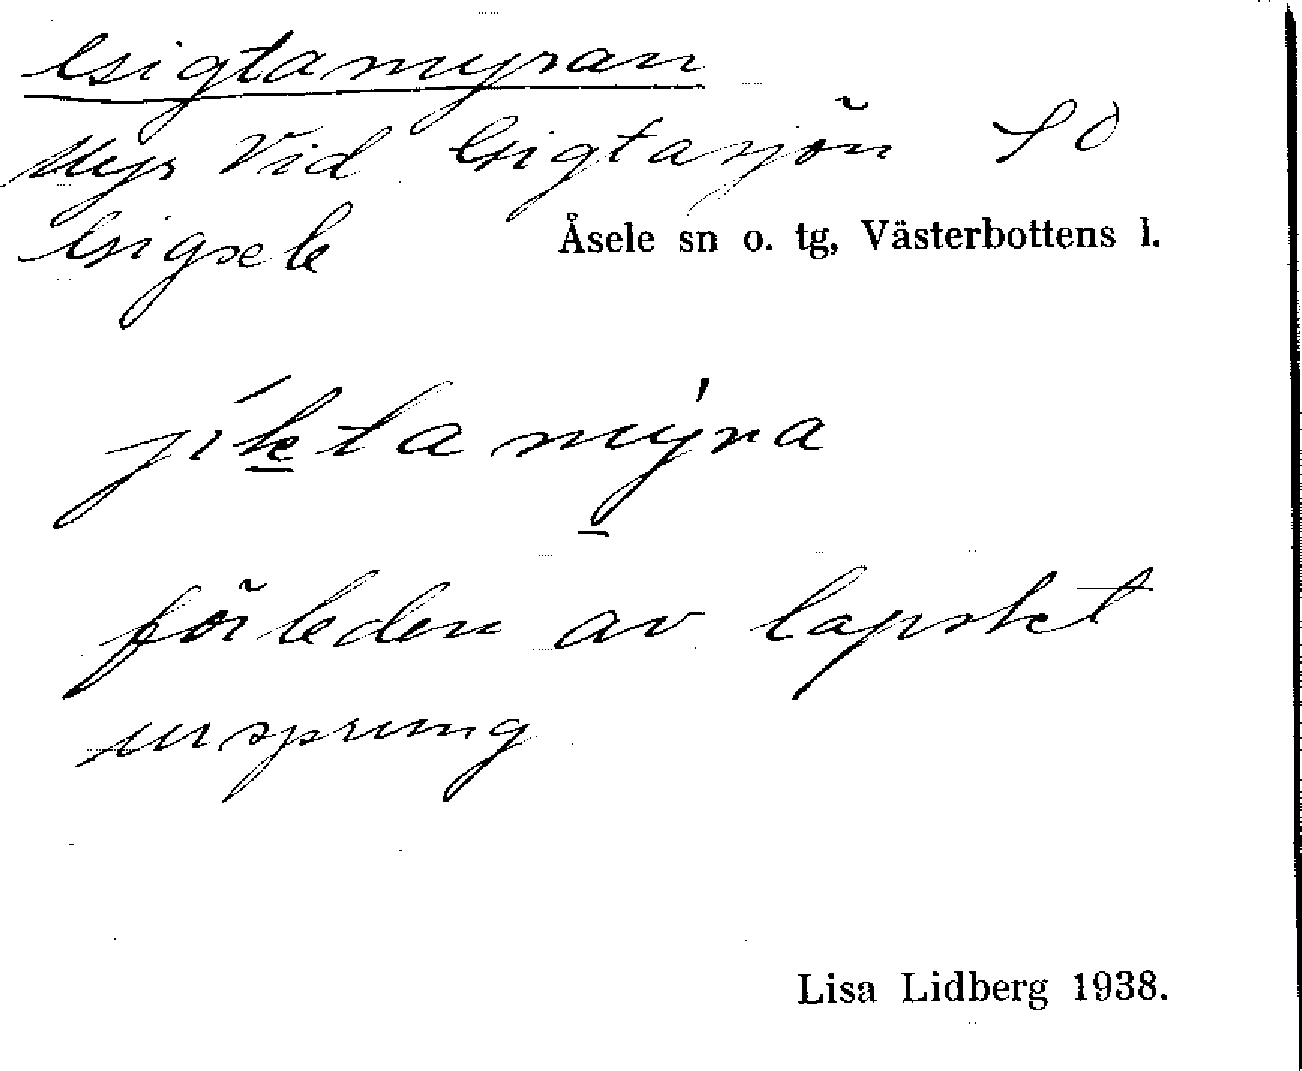 Gigtamyran
Myr vid Gigtasjön SO
Gigsele Åsele sn o. tg, Västerbottens l.
jíktamýra
förleden av lapskt
ursprung
Lisa Lidberg 1938.